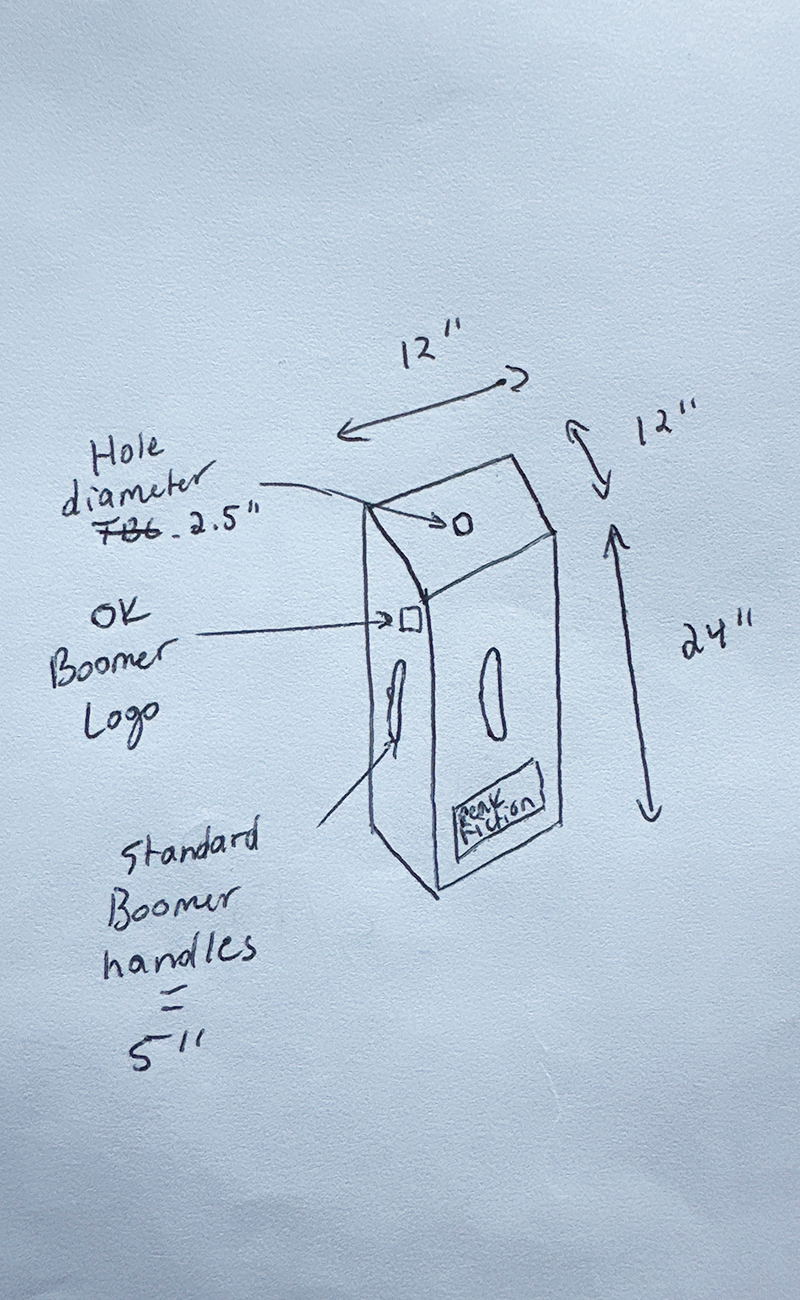 12"
12"
Hole
diameter
2.5"
24"
OK
Boomer
Logo
Peak
Fiction
Standard
Boomer
handles
=
5"